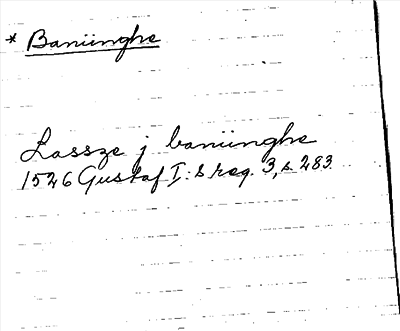 * Baniinghe
Lassze j baniinghe
1526 Gustaf I:s reg. 3, s. 283.